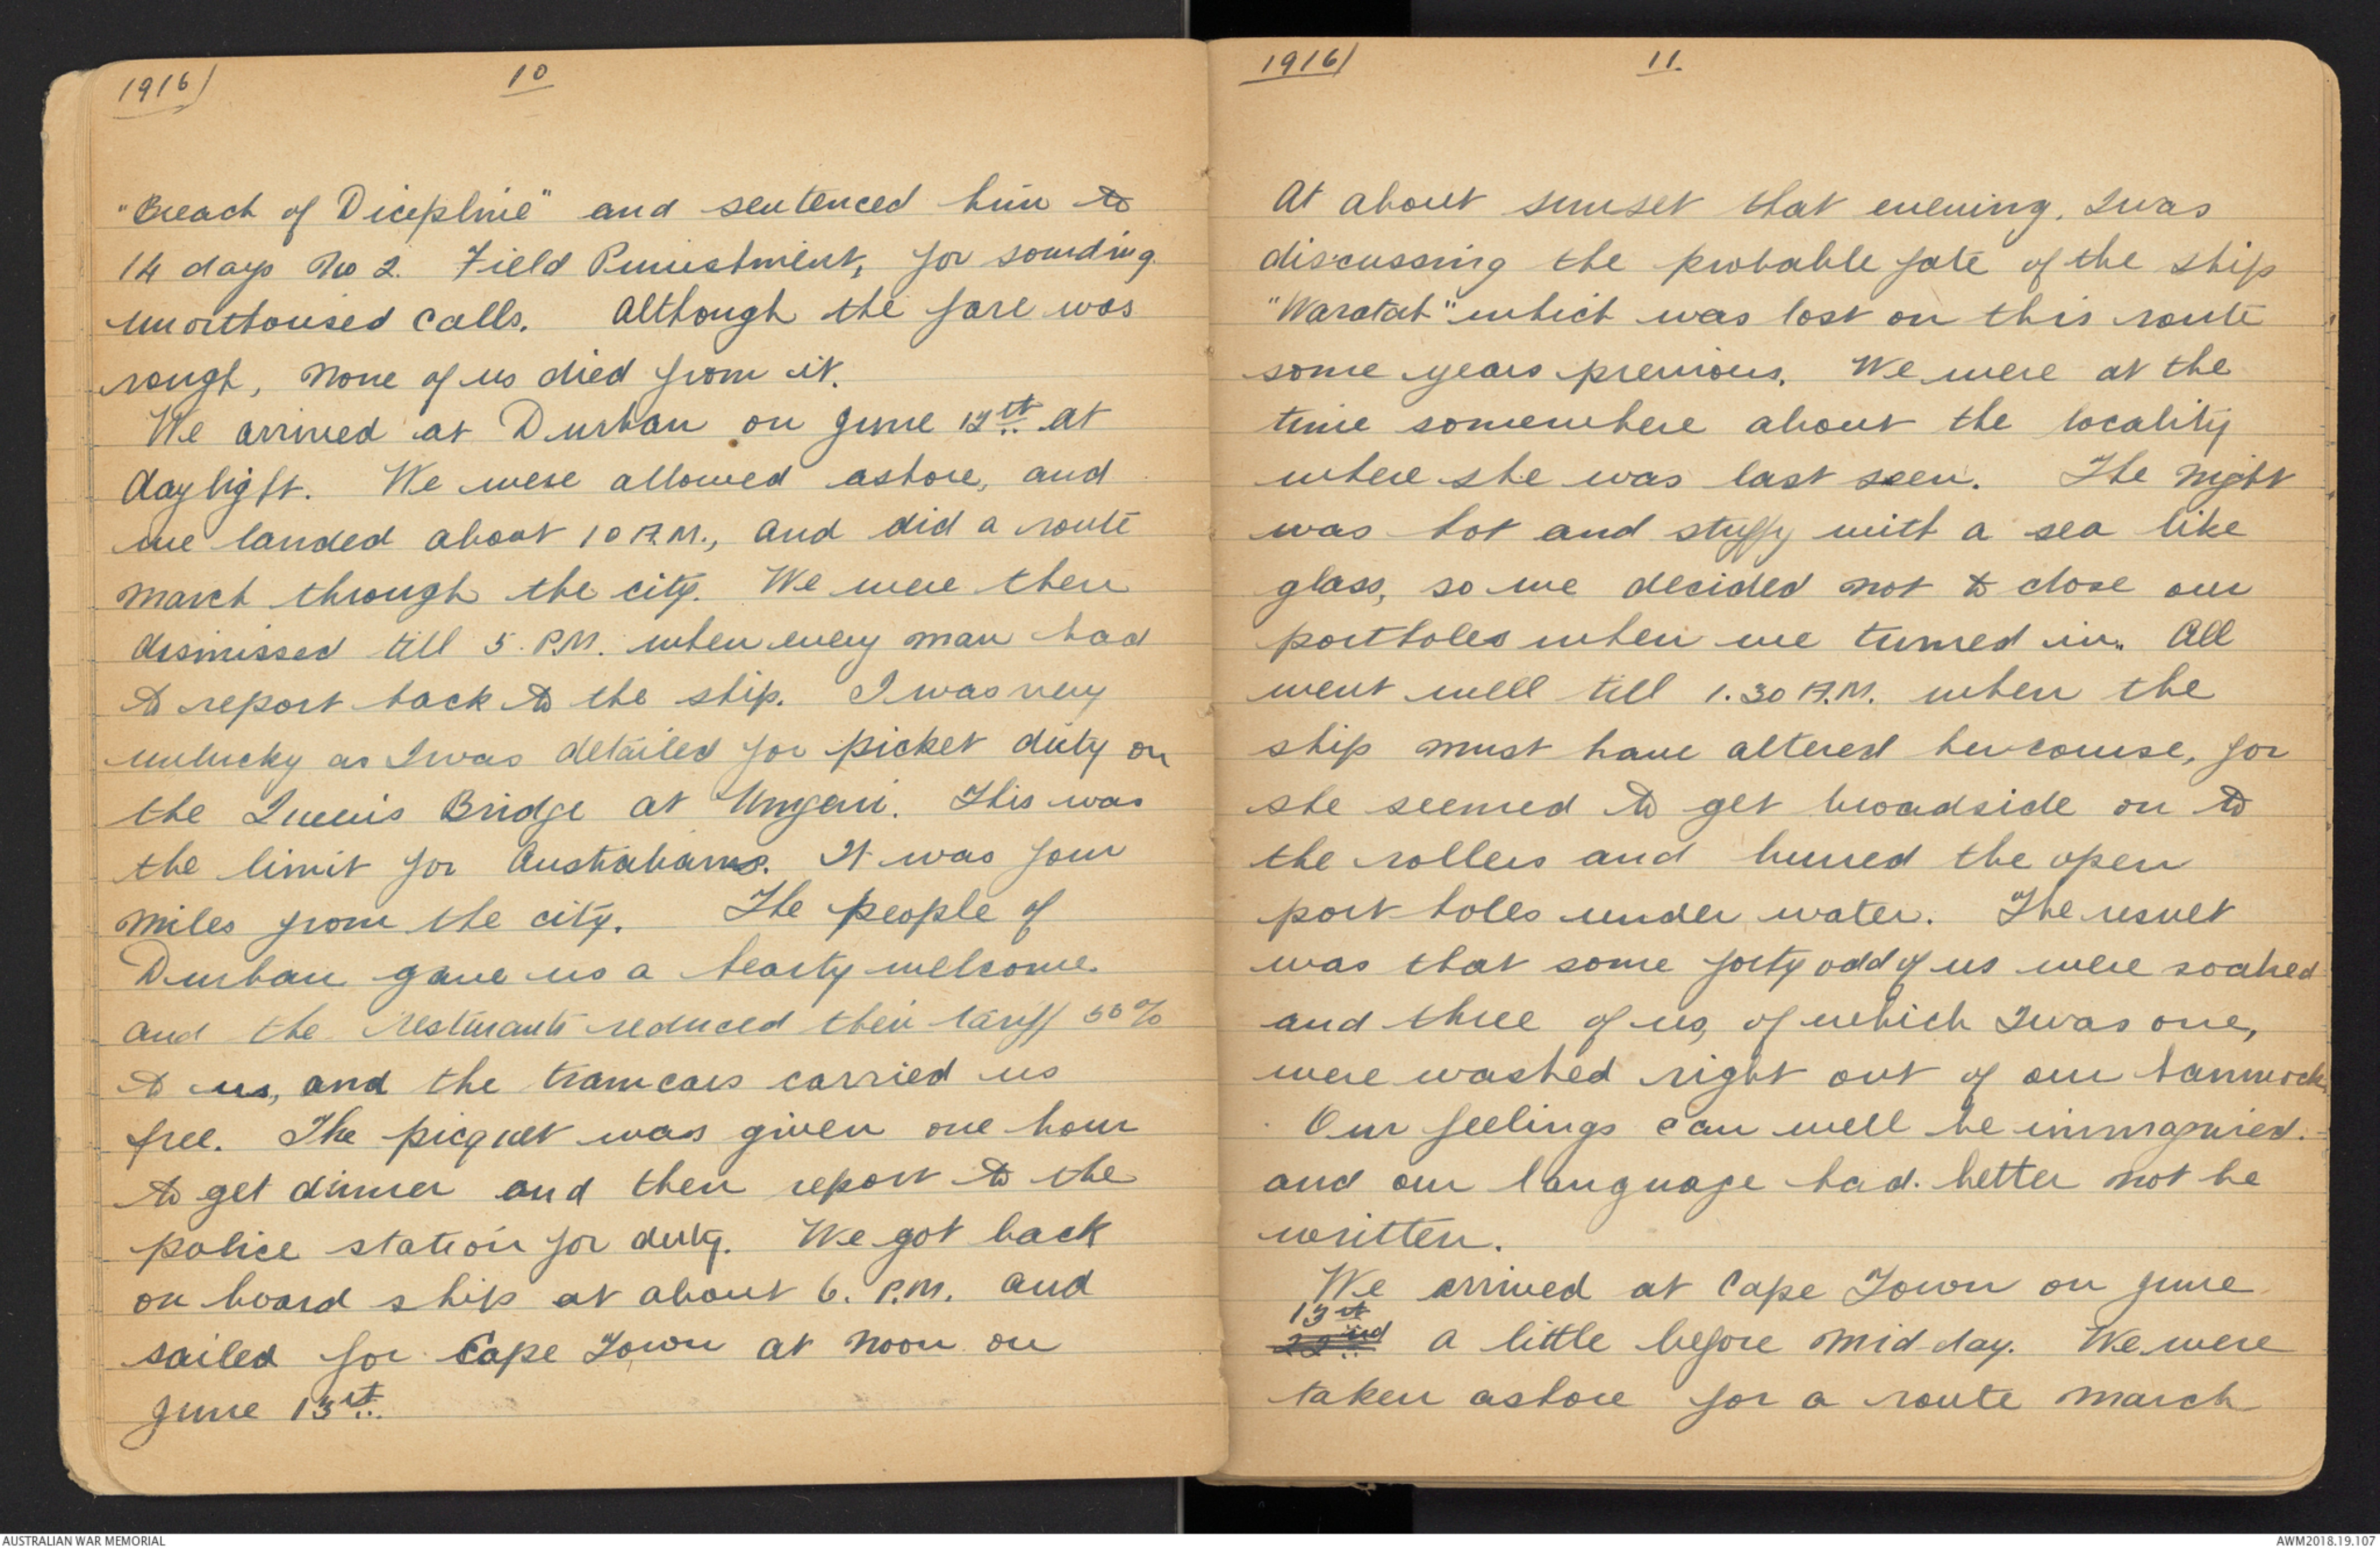 1916/ 10
"Breach of Dicipline" and sentenced him to
14 days No 2. Field Punishment, for sounding
unorthourised calls. Although the fare was
rough, none of us died from it.
We arrived at Durban on June 12th. at
daylight. We were allowed ashore, and
we landed about 10 A.M., and did a route
march through the city. We were then
dismissed till 5. P.M. when every man had
to report back to the ship. I was very
unlucky as I was detailed for picket duty on
the Queens Bridge at Umgeni. This was
the limit for Australians. It was four
miles from the city. The people of
Durban gave us a hearty welcome.
and the resturants reduced their tariff 50%
to us, and the tramcars carried us
free. The picquet was given one hour
to get dinner and then report to the
police station for duty. We got back
on board ship at about 6. P.M. and
sailed for Cape Town at noon on
June 13th.
1916/ 11.
At about sunset that evening, I was
discussing the probable fate of the ship
"Waratah" which was lost on this route
some years previous. We were at the
time somewhere about the locality
where she was last seen. The night
was hot and stuffy with a sea like
glass, so we decided not to close our
portholes when we turned in. All
went well till 1.30 A.M. when the
ship must have altered her course, for
she seemed to get broadside on to
the rollers and burried the open
port holes under water. The result
was that some forty odd of us were soaked
and three of us, of which I was one,
were washed right out of our hammocks
Our feelings can well be immagined.
and our language had. better not be
written.
We arrived at Cape Town on June
13th
22nd a little before mid-day. We were
taken ashore for a route march
AUSTRALIAN WAR MEMORIAL
AWM2018.19.107